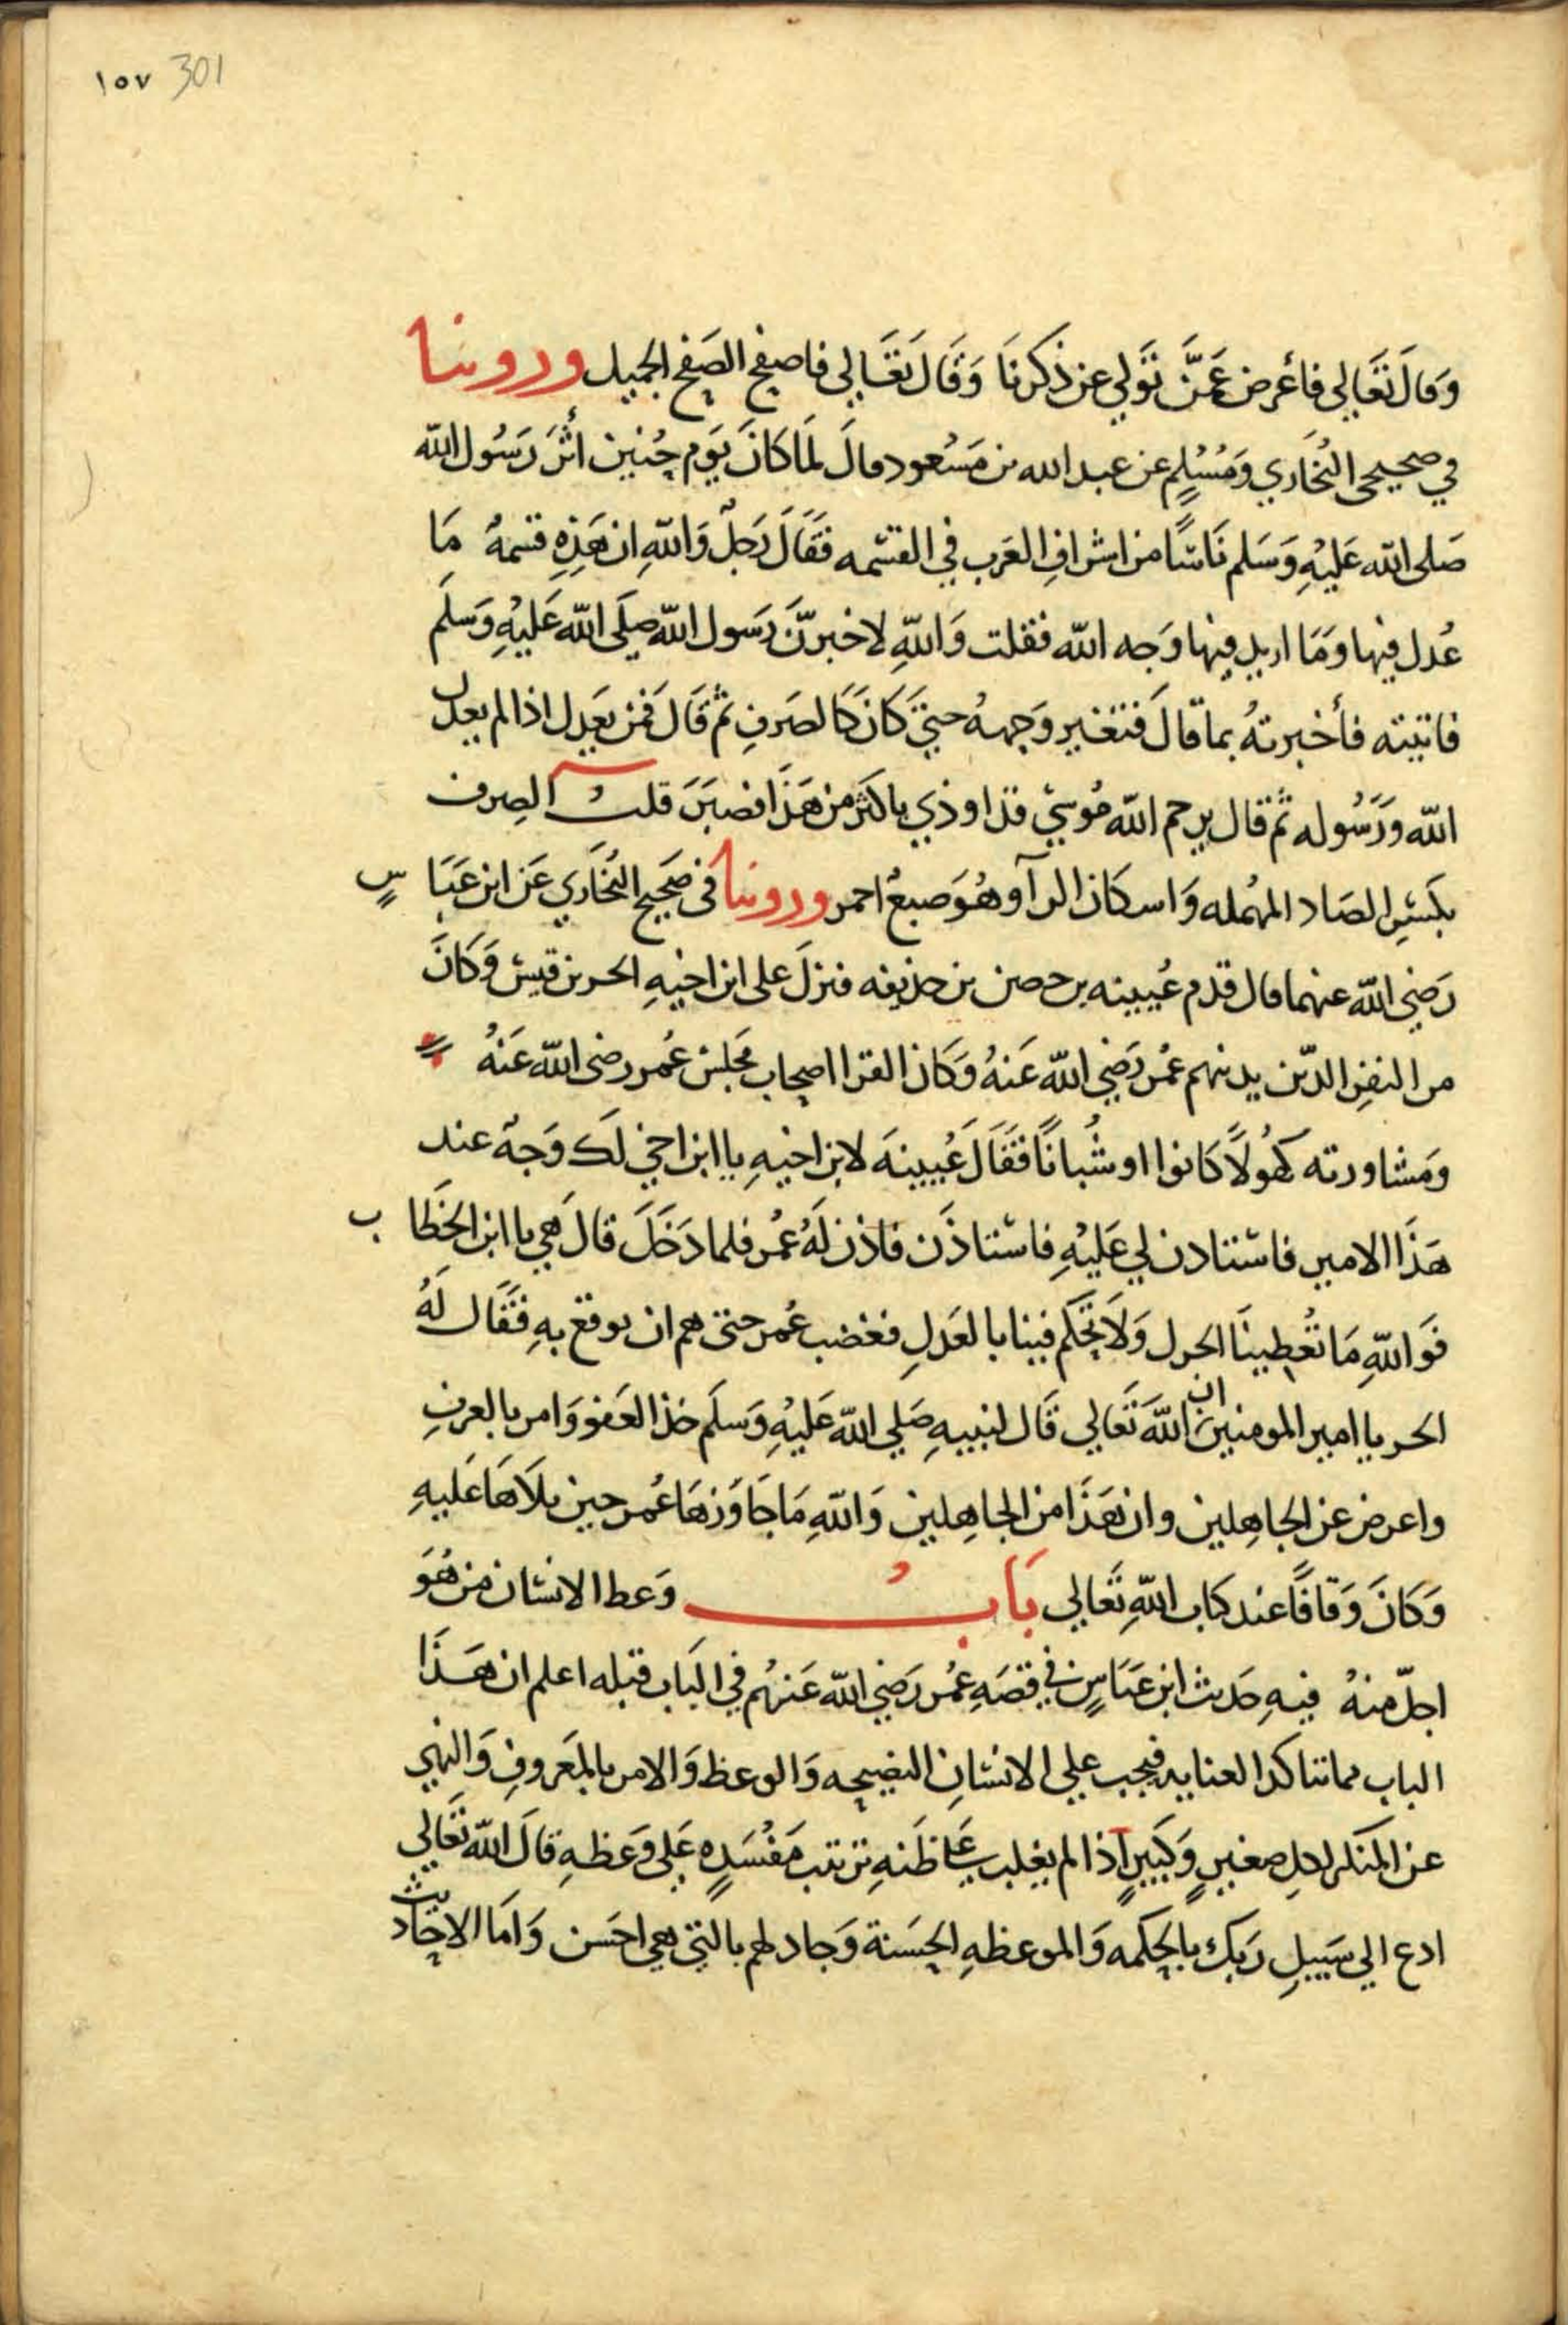 ١٥٧ 301
وَقالَ تَعَالي فأعرض عَمَّن تَولي عن ذكرنَا وَقَالَ تعَالي فاصفح الصَفح الجميل وروينا
في صحيحي البُخَاري وَمُسْلِم عن عبد الله بن مَسْعود قالَ لمَا كانَ يَوم حُنين أثَرَ رَسُول الله
صَلى الله عَليْهِ وَسَلم نَاسًا من اشرافِ العَرب في القسْمه فقَالَ رَجلٌ وَاللهِ ان هَذِهِ قسمةٌ مَا
عُدل فيها وَمَا اريد فيها وَجه الله فقلت وَاللهِ لاخبرنَّ رَسول الله صَلَى الله عَليْهِ وَسَلَم
فاتيته فأخبرتهُ بما قالَ فتغير وَجههُ حتيَ كانَ كَالصَرفِ ثم قَالَ فمَن يَعدل اذا لم يعدل
الله وَرَسُوله ثم قال يرحم الله مُوسَي قد اوذي باكثرَ من هَذَا فصَبَرَ قلتُ الصِرف
بكسْرِ الصَاد المهْمله وَاسكان الرآ وهُوَ صبغٌ احمر وروينا في صَحيح البُخَاري عَن ابن عَبَاسٍ
رَضي الله عنهما قال قدم عُيينه بن حصن بن حذيفه فنزلَ على ابن اخيهِ الحر بن قيسْ وَكَانَ
من النفرِ الذين يدنيهم عُمر رَضي الله عَنهُ وَكَان القرا اصحاب مَجلسْ عُمر رضى الله عَنهُ
وَمشاورته كهُولاً كَانوا او شُبانًا فقَالَ عُيينةَ لابن اخيهِ يا ابن اخي لَكَ وَجهٌ عند
هَذَا الامير فاسْتادن لي عَليْهِ فاسْتاذَن فاذن لَهُ عُمر فلما دَخَلَ قالَ هي يا ابن الخَطاب
فَوَاللهِ مَا تُعطينَا الجزل وَلاَ تحَكم فينا بالعَدلِ فغضب عُمر حتى هم ان يوقع بهِ فقَال لَهُ
الحر يا امير المومنين ان اللهَ تَعَالي قَال لنبيهِ صَلي الله عَليْهِ وَسَلَم خذ العَفو وَامر بالعرفِ
واعرض عن الجاهِلين وان هَذَا من الجاهِلين وَاللهِ مَا جَاوَزهَا عُمر حين تلاَهَا عَليهِ
وَكَانَ وَقافًا عند كتاب اللهِ تَعَالي بَابُ وَعظ الانسْان من هُوَ
اجلّ منهُ فيهِ حَديث ابن عَبَاسٍ في قصَهِ عُمر رَضي الله عَنهُم في البَاب قبله اعلم ان هَذَا
الباب مما تتاكد العنايه فيجب علي الانسْانِ النصيحه وَالوعظ وَالامر بالمَعَروفِ وَالنهي
عن المنكر لكلِ صغيرٍ وَكبيرٍ اذا لم يغلب عَلي ظَنهِ ترتب مَفسَدهٍ عَلي وَعظهِ قالَ الله تَعَالي
ادع الي سَبيلِ رَبك بالحكمه وَالموعظهِ الحسَنة وَجادلهم بالتي هي احسَن وَامَا الاحَاديث